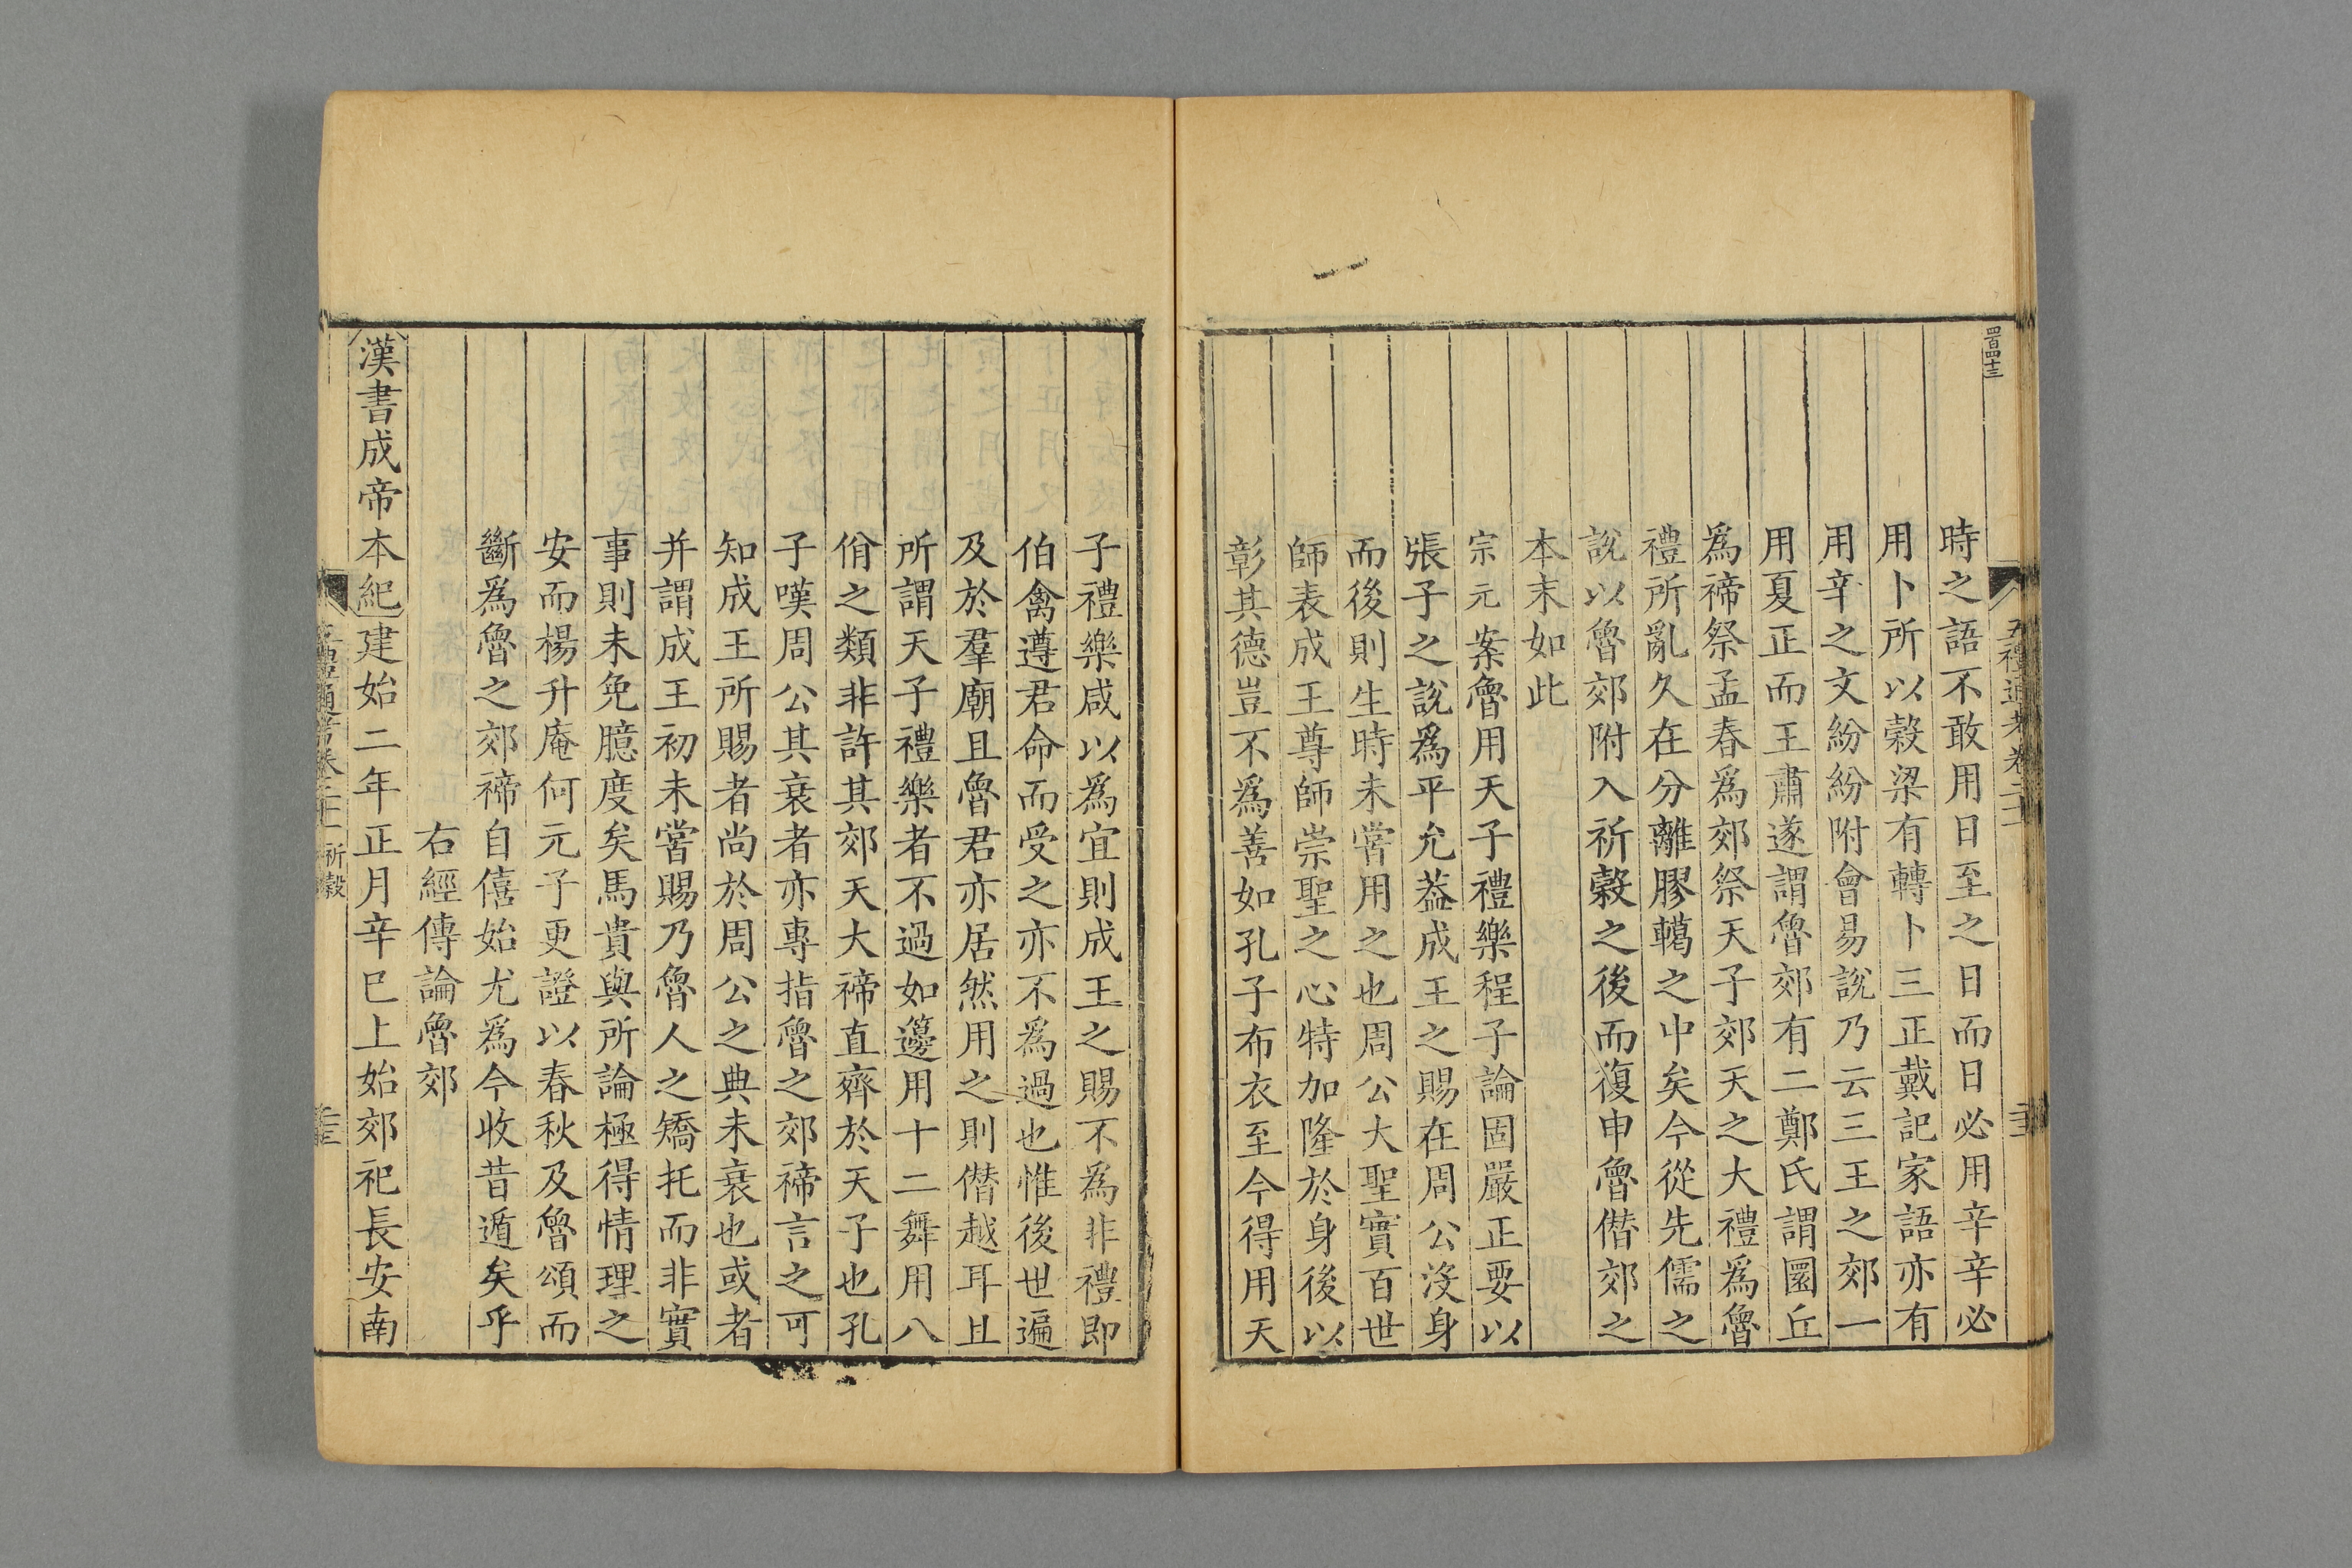 四百四十三
時之語不敢用日至之日而日必用辛辛必
用卜所以穀梁有轉卜三正戴記家語亦有
用辛之文紛紛附會易說乃云三王之郊一
用夏正而王肅遂謂魯郊有二鄭氏謂圜丘
爲禘祭孟春爲郊祭天子郊天之大禮爲魯
禮所亂久在分離膠轕之中矣今從先儒之
說以魯郊附入祈穀之後而復申魯僭郊之
本末如此
宗元案魯用天子禮樂程子論固嚴正要以
張子之說爲平允葢成王之賜在周公沒身
而後則生時未嘗用之也周公大聖實百世
師表成王尊師崇聖之心特加隆於身後以
彰其德豈不爲善如孔子布衣至今得用天
子禮樂咸以爲宜則成王之賜不爲非禮即
伯禽遵君命而受之亦不爲過也惟後世遍
及於羣廟且魯君亦居然用之則僭越耳且
所謂天子禮樂者不過如籩用十二舞用八
佾之類非許其郊天大禘直齊於天子也孔
子嘆周公其衰者亦專指魯之郊禘言之可
知成王所賜者尚於周公之典未衰也或者
并謂成王初未嘗賜乃魯人之矯托而非實
事則未免臆度矣馬貴與所論極得情理之
安而楊升庵何元子更證以春秋及魯頌而
斷爲魯之郊禘自僖始尤爲今收昔遁矣乎
右經傳論魯郊
漢書成帝本紀建始二年正月辛巳上始郊祀長安南
五禮通考卷二十一 祈穀